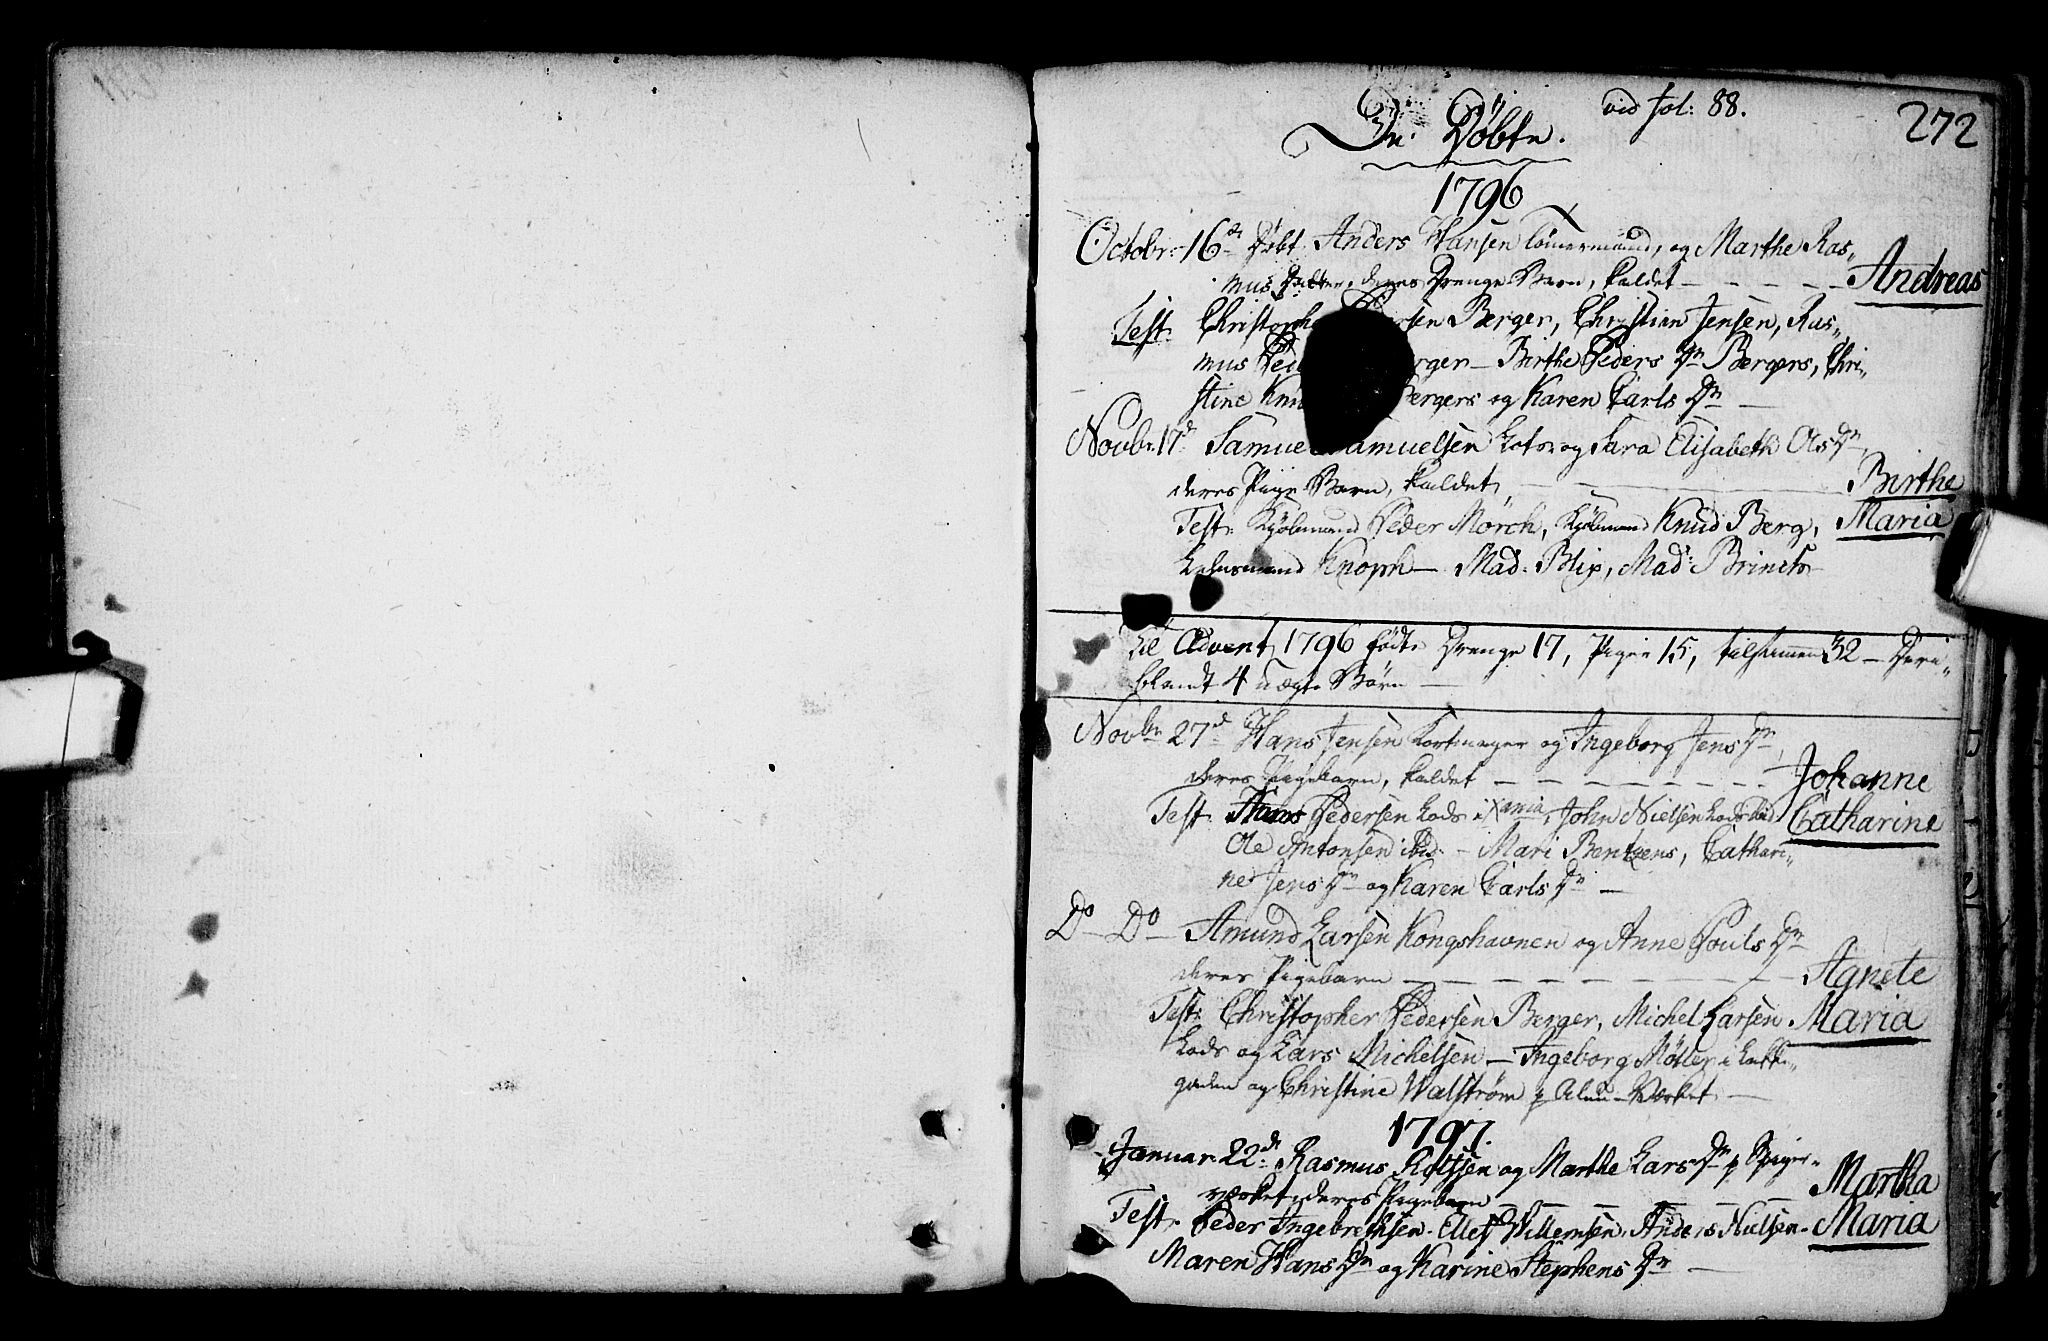 vid fol: 88.
272
De Döbte.
1796
Octobr: 16de Döbt. Anders Hansen Tömermand, og Marthe Ras„
mus Datter, deres Drenge Barn, kaldet — Andreas
Test. Christoph Pedersen Berger, Christian Jensen, Ras„
mus Berger — Birthe Peders Dn Bergers, Chri„
stine Knu Bergers og Karen Carls Dn —
Novbr. 17d Samuel Samuelsen Lots og Sara Elisabeth Ols Dn
deres Pige Barn, kaldet, — Birthe
Test: Kjöbmand Peder Mörch, Kjöbmand Knud Berg, Maria
Knoph — Mad: Blix, Mad: Brinchs
Til Advent 1796 födte Drenge 17, Piger 15, tilsammen 32 — Deri„
blandt 4 uægte Börn —
Novbr 27d Hans Jensen og Ingeborg Jens Dn,
deres Pigebarn, kaldet — Johanne
Test. Hans Pedersen Lods i Xania, John Nielsen Lods ibid Catharine
Ole Antonsen ibid. — Mari Bentzens, Cathari„
ne Jens Dn og Karen Carls Dn —
Do — Do — Amund Larsen Kongshavnen og Anne Pouls Dn
deres Pigebarn — Agnete
Test: Christopher Pedersen Berger, Michel Larsen Maria
Lods og Lars Michelsen — Ingeborg Möller i
gaden og Christine Walström p Alun-Værket —
1797.
Januar 22d: Rasmus Rolfsen og Marthe Lars Dn p Spiger„
værket, deres Pigebarn — Martha
Test. Peder Ingebrechsen. Ellef Willemsen, Anders Nielsen — Maria
Maren Hans Dn og Karine Stephens Dn —